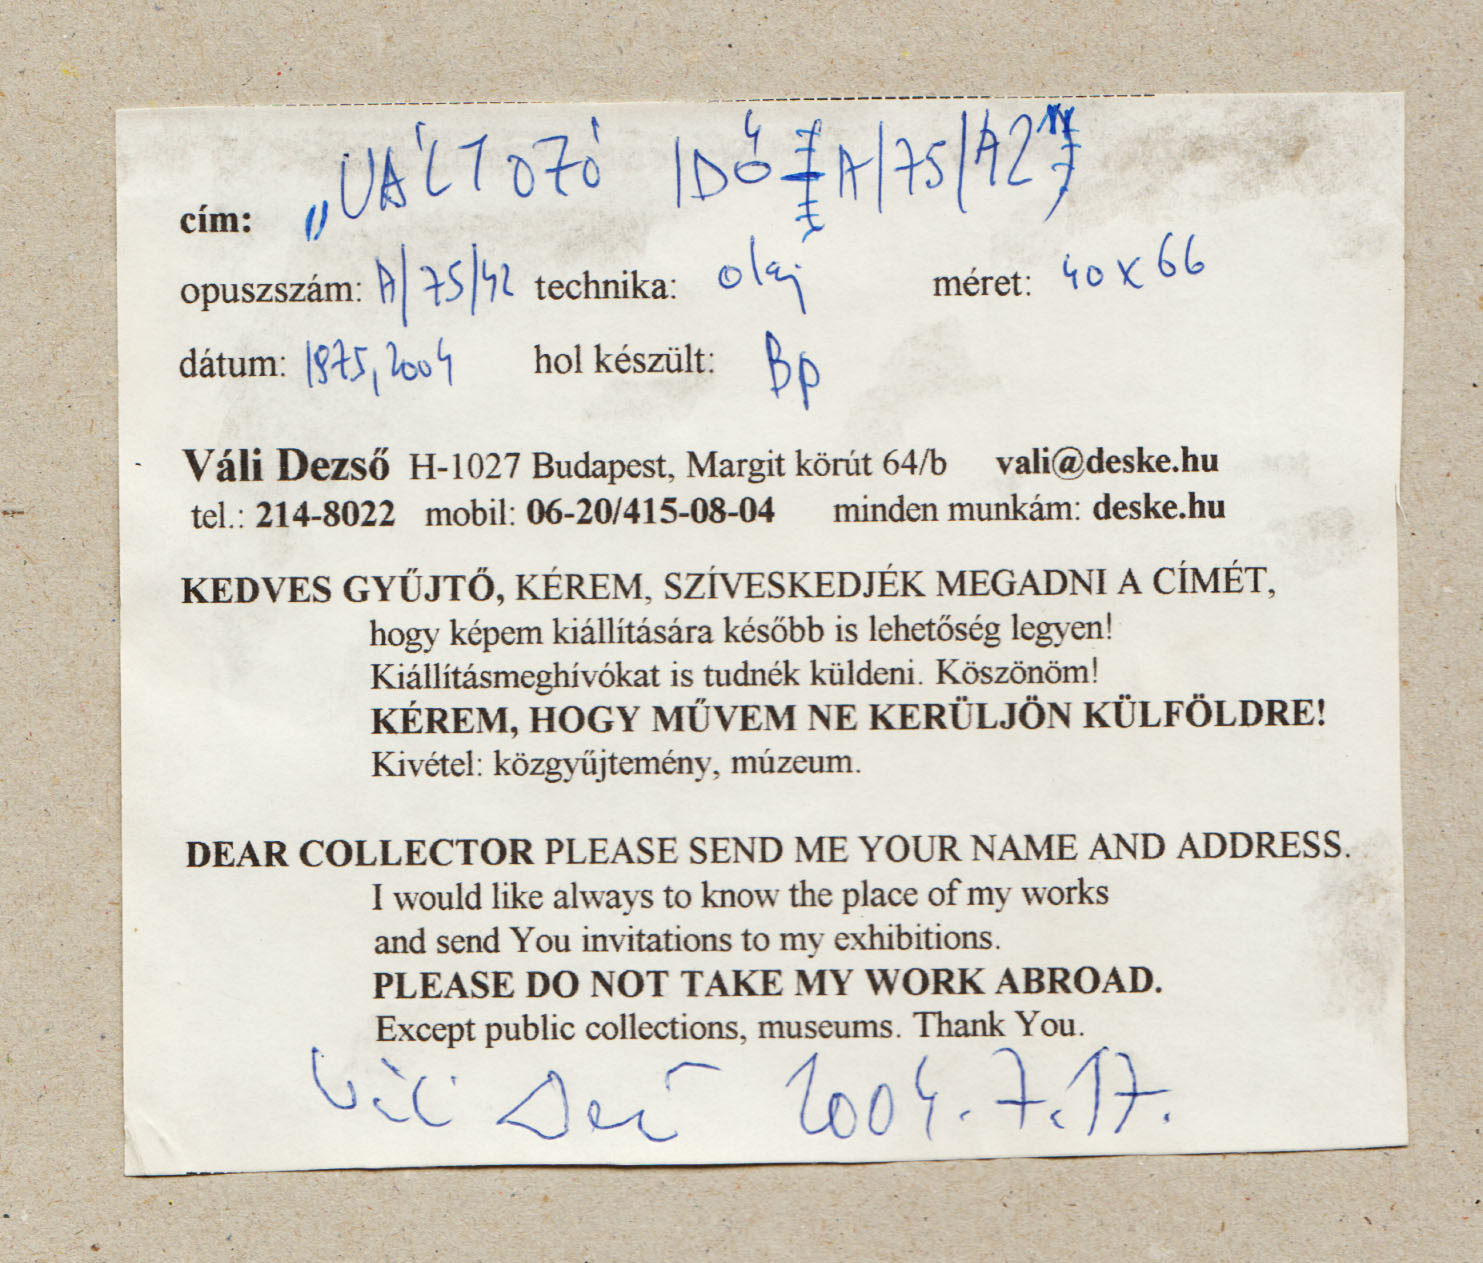 cím: „VÁLTOZÓ IDŐ (A/75/42)”
opuszszám: A/75/42 technika: olaj méret: 40 x 66
dátum: 1975, 2004 hol készült: Bp
Váli Dezső H-1027 Budapest, Margit körút 64/b vali@deske.hu
tel.: 214-8022 mobil: 06-20/415-08-04 minden munkám: deske.hu
KEDVES GYŰJTŐ, KÉREM, SZÍVESKEDJÉK MEGADNI A CÍMÉT,
hogy képem kiállítására később is lehetőség legyen!
Kiállításmeghívókat is tudnék küldeni. Köszönöm!
KÉREM, HOGY MŰVEM NE KERÜLJÖN KÜLFÖLDRE!
Kivétel: közgyűjtemény, múzeum.
DEAR COLLECTOR PLEASE SEND ME YOUR NAME AND ADDRESS.
I would like always to know the place of my works
and send You invitations to my exhibitions.
PLEASE DO NOT TAKE MY WORK ABROAD.
Except public collections, museums. Thank You.
Váli Dezső 2004. 7. 17.